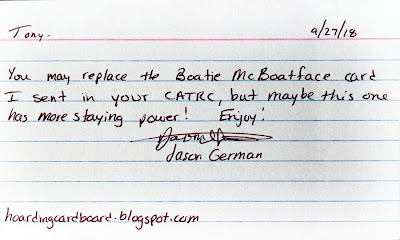 Tony. 9/27/18
You may replace the Boatie McBoatface card
I sent in your CATRC, but maybe this one
has more staying power! Enjoy!
Jason German
hoardingcardboard.blogspot.com